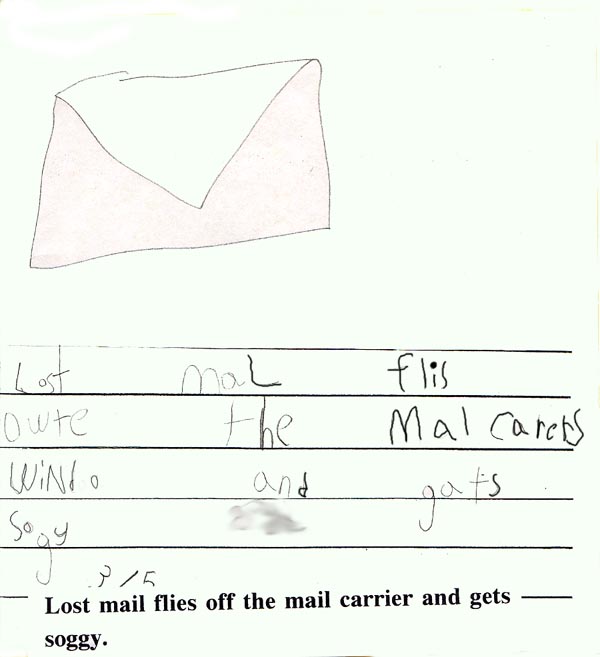 Lost maL flis
owte the Mal carers
WiNdo and gats
sogy
3/5
Lost mail flies off the mail carrier and gets
soggy.